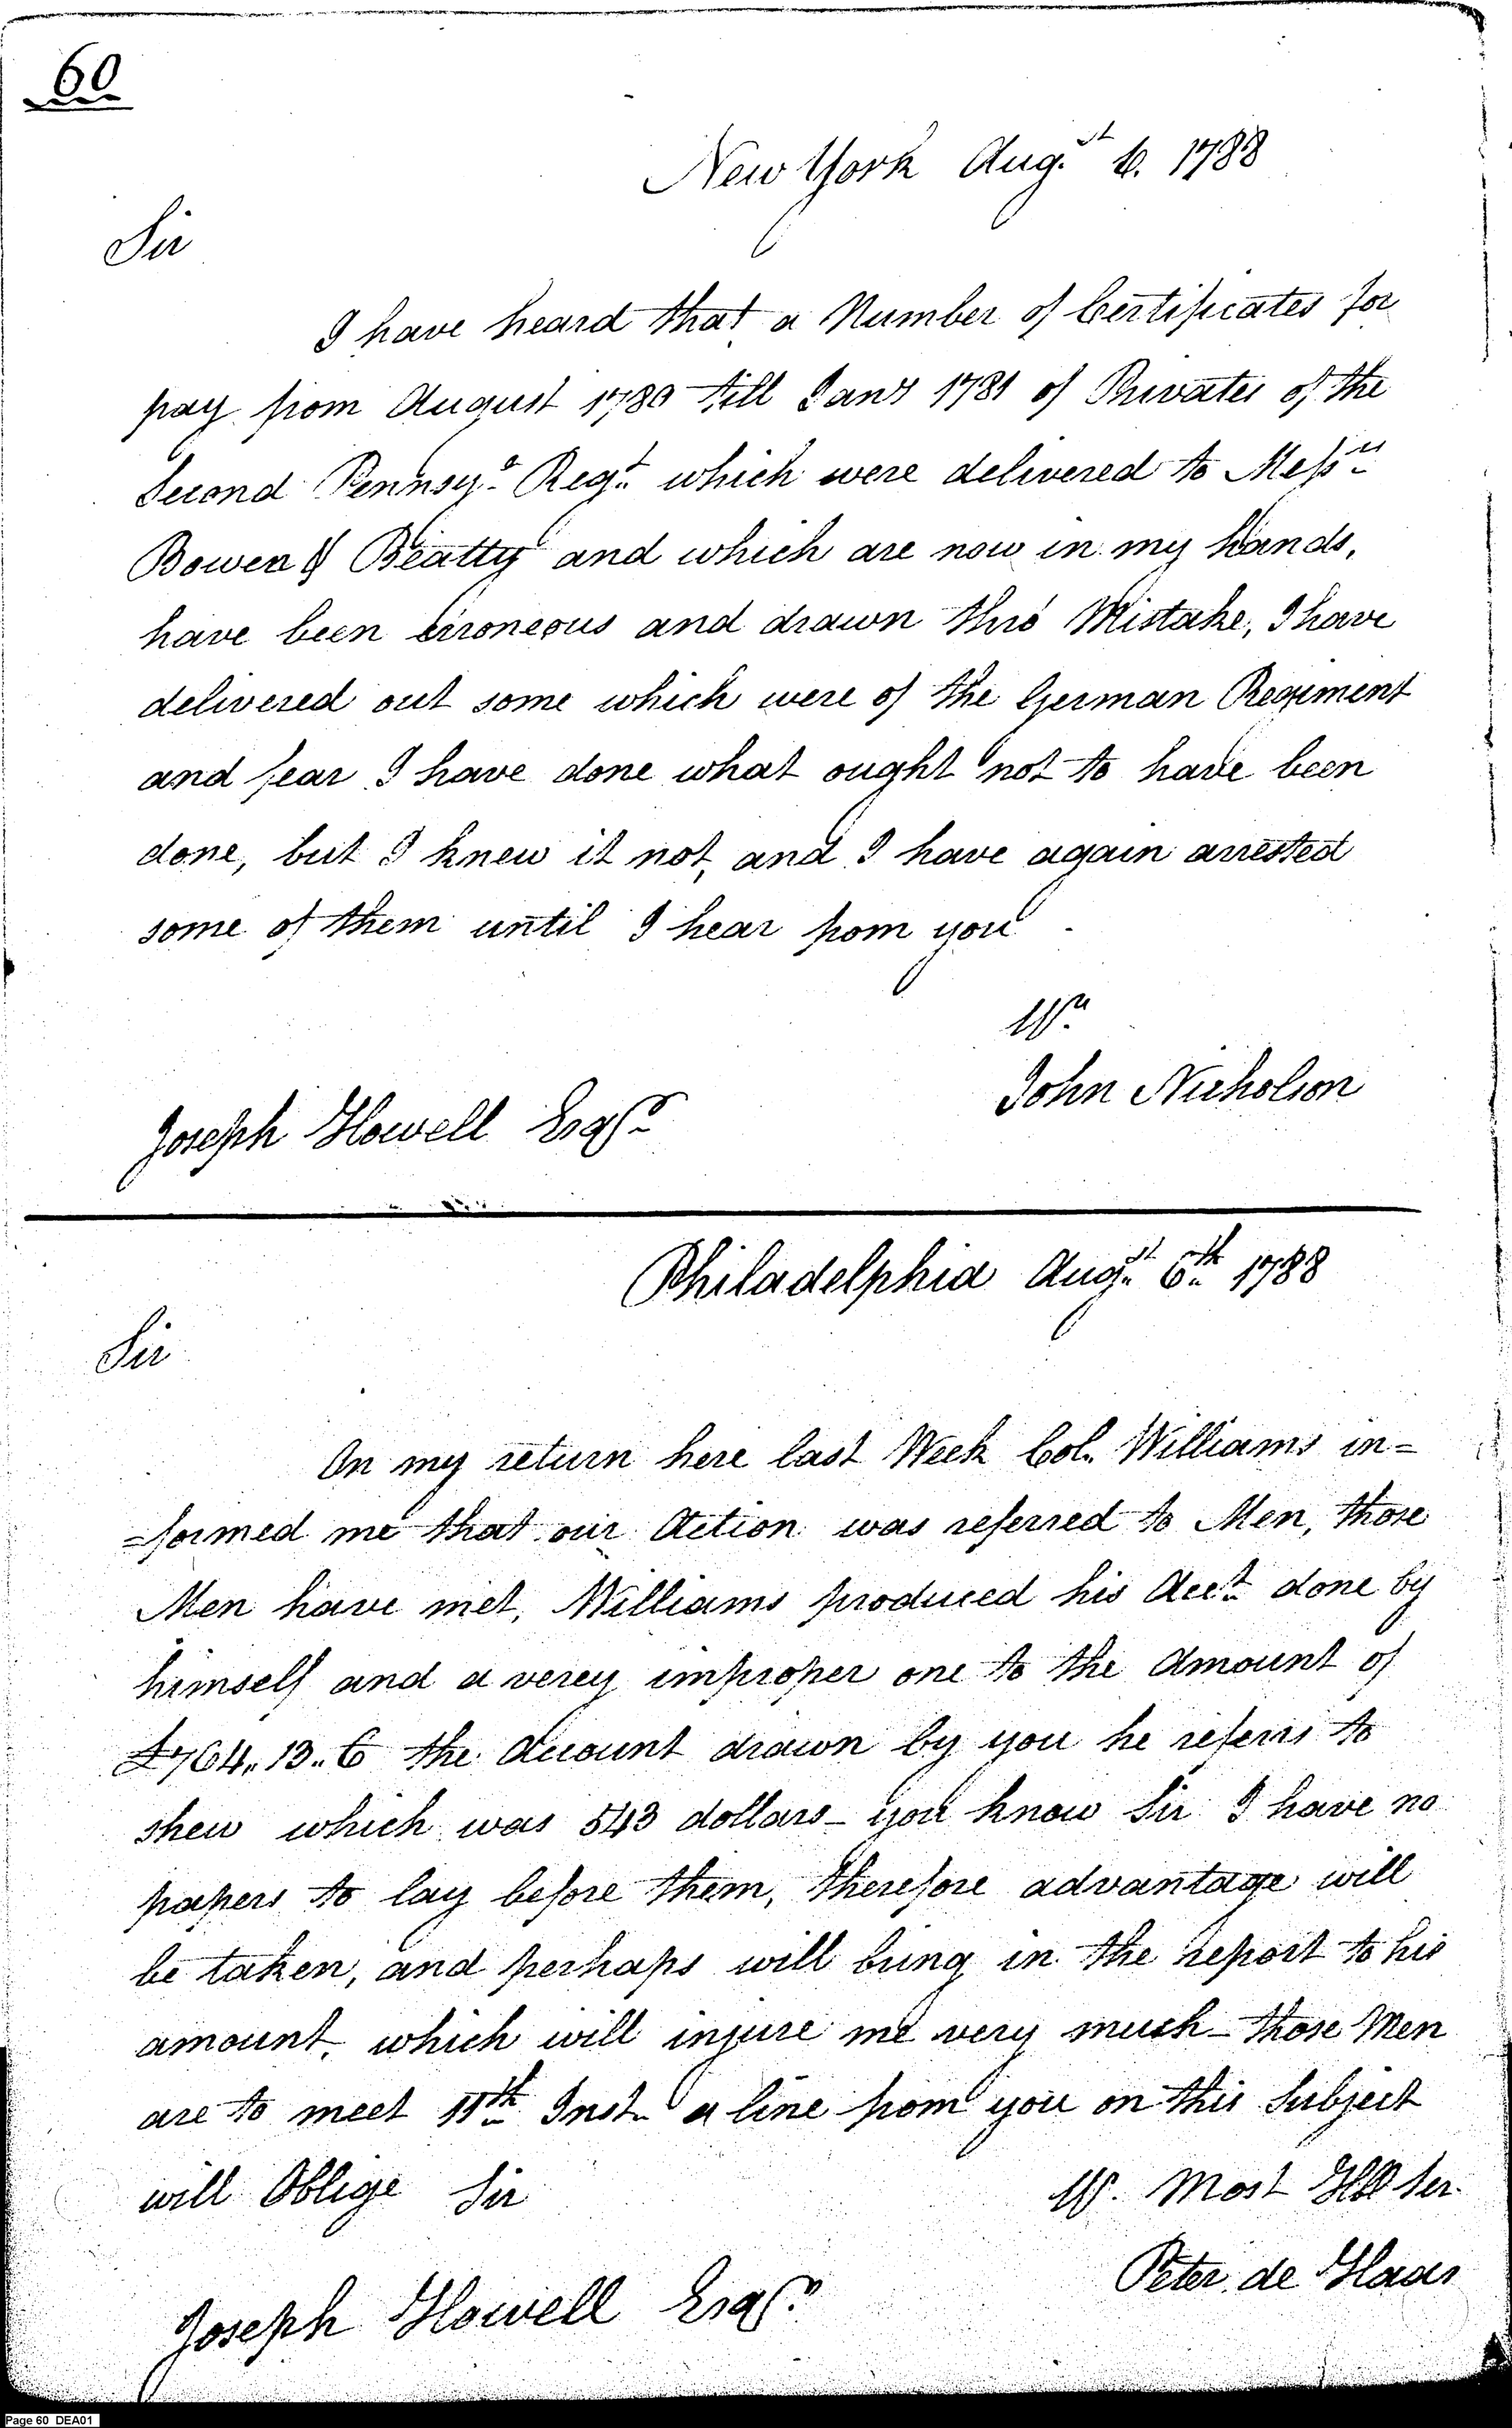 60
New York Augst 6. 1788
Sir
I have heard that a Number of Certificates for
pay from August 1780 till Jany 1781 of Privates of the
Second Pennsya. Regt. which were delivered to Messrs.
Bowen & Beatty and which are now in my hands,
have been erroneous and drawn thro' Mistake, I have
delivered out some which were of the German Regiment
and fear I have done what ought not to have been
done, but I knew it not, and I have again arrested
some of them until I hear from you
Yrs.
John Nicholson
Joseph Howell Esqr.
Philadelphia Augst. 6th. 1788
Sir
On my return here last Week Col. Williams in=
=formed me that our Action was referred to Men, those
Men have met, Williams produced his Acct. done by
himself and a verey improper one to the Amount of
£764.. 13.. 6 the Account drawn by you he referrs to
shew which was 543 dollars - you know Sir I have no
papers to lay before them, therefore advantage will
be taken, and perhaps will bring in the report to his
amount, which will injure me very much - those Men
are to meet 11th. Inst. a line from you on this Subject
will Oblige Sir
Yr. Most Hbl Ser.
Peter de Haas
Joseph Howell Esqr.
Page 60 DEA01